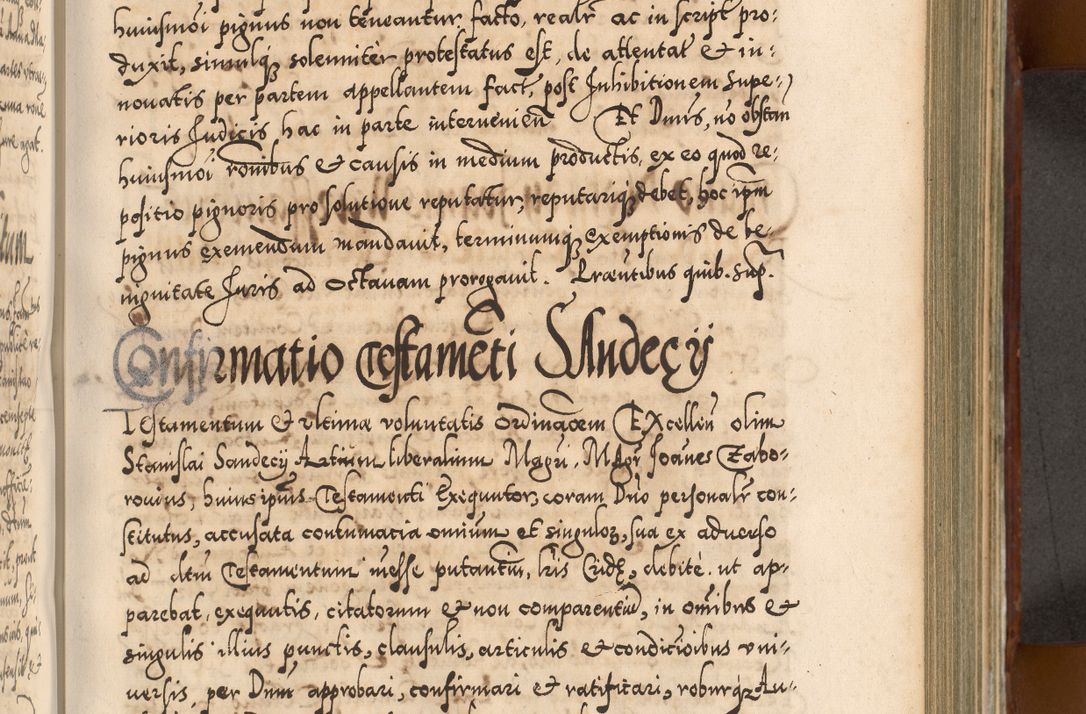 huiusmoi pignus non teneantur facto, realr ac in script pro:
duxit, simulq solemniter protestatus est, de attentat & in:
novatis per partem appellantem fact, post Inhibitionem Supe:
rioris Judicis hac in parte intervenien Et Dnus, no obstan
huiusmoi ronibus & causis in medium productis, ex eo quod re:
positio pignoris pro solutione reputatur, reputariq debet, hoc ipm
pignus exemendam mandavit, terminumq exemptionis de be:
nignitate Juris ad Octavam prorogavit. Praesentibus quib. Sup.
Confirmatio Testameti Sandecy
Testamentum & ultima voluntatis Ordinaoem Excellen olim
Stanislai Sandecy Artium liberalium Magri, Magr Joanes Zabo:
rovius, huius ipius Testamenti Exequutor, coram Dno personalr con:
stitutus, accusata contumacia omium et singulor, sua ex adverso
ad dtm Testamentum iesse putantiu, lris Cride, debite, ut ap:
parebat, exequutis, citatorum & non comparentiu, in omibus &
singulis illius punctis, clausulis, articulis & condicioibus uni:
versis, per Dnm approbari, confirmari & ratificari, roburq Au: